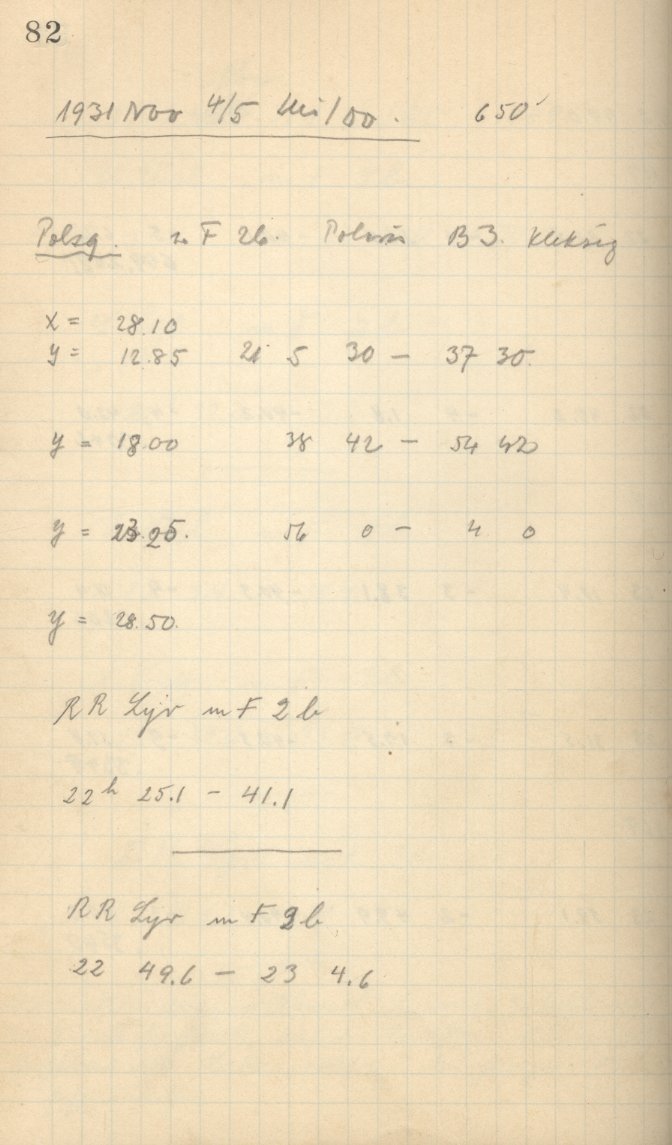 82
1931 Nov 4/5 650
Polsq. m F 2b. Polaris B 3.
x = 28.10
y = 12.85 21 5 30 - 37 30.
y = 18.00 38 42 - 54 42
y = 23.25. 56 0 - 4 0
y = 28.50.
RR Lyr m F 2b
22h 25.1 - 41.1
RR Lyr m F 2b
22 49.6 - 23 4.6